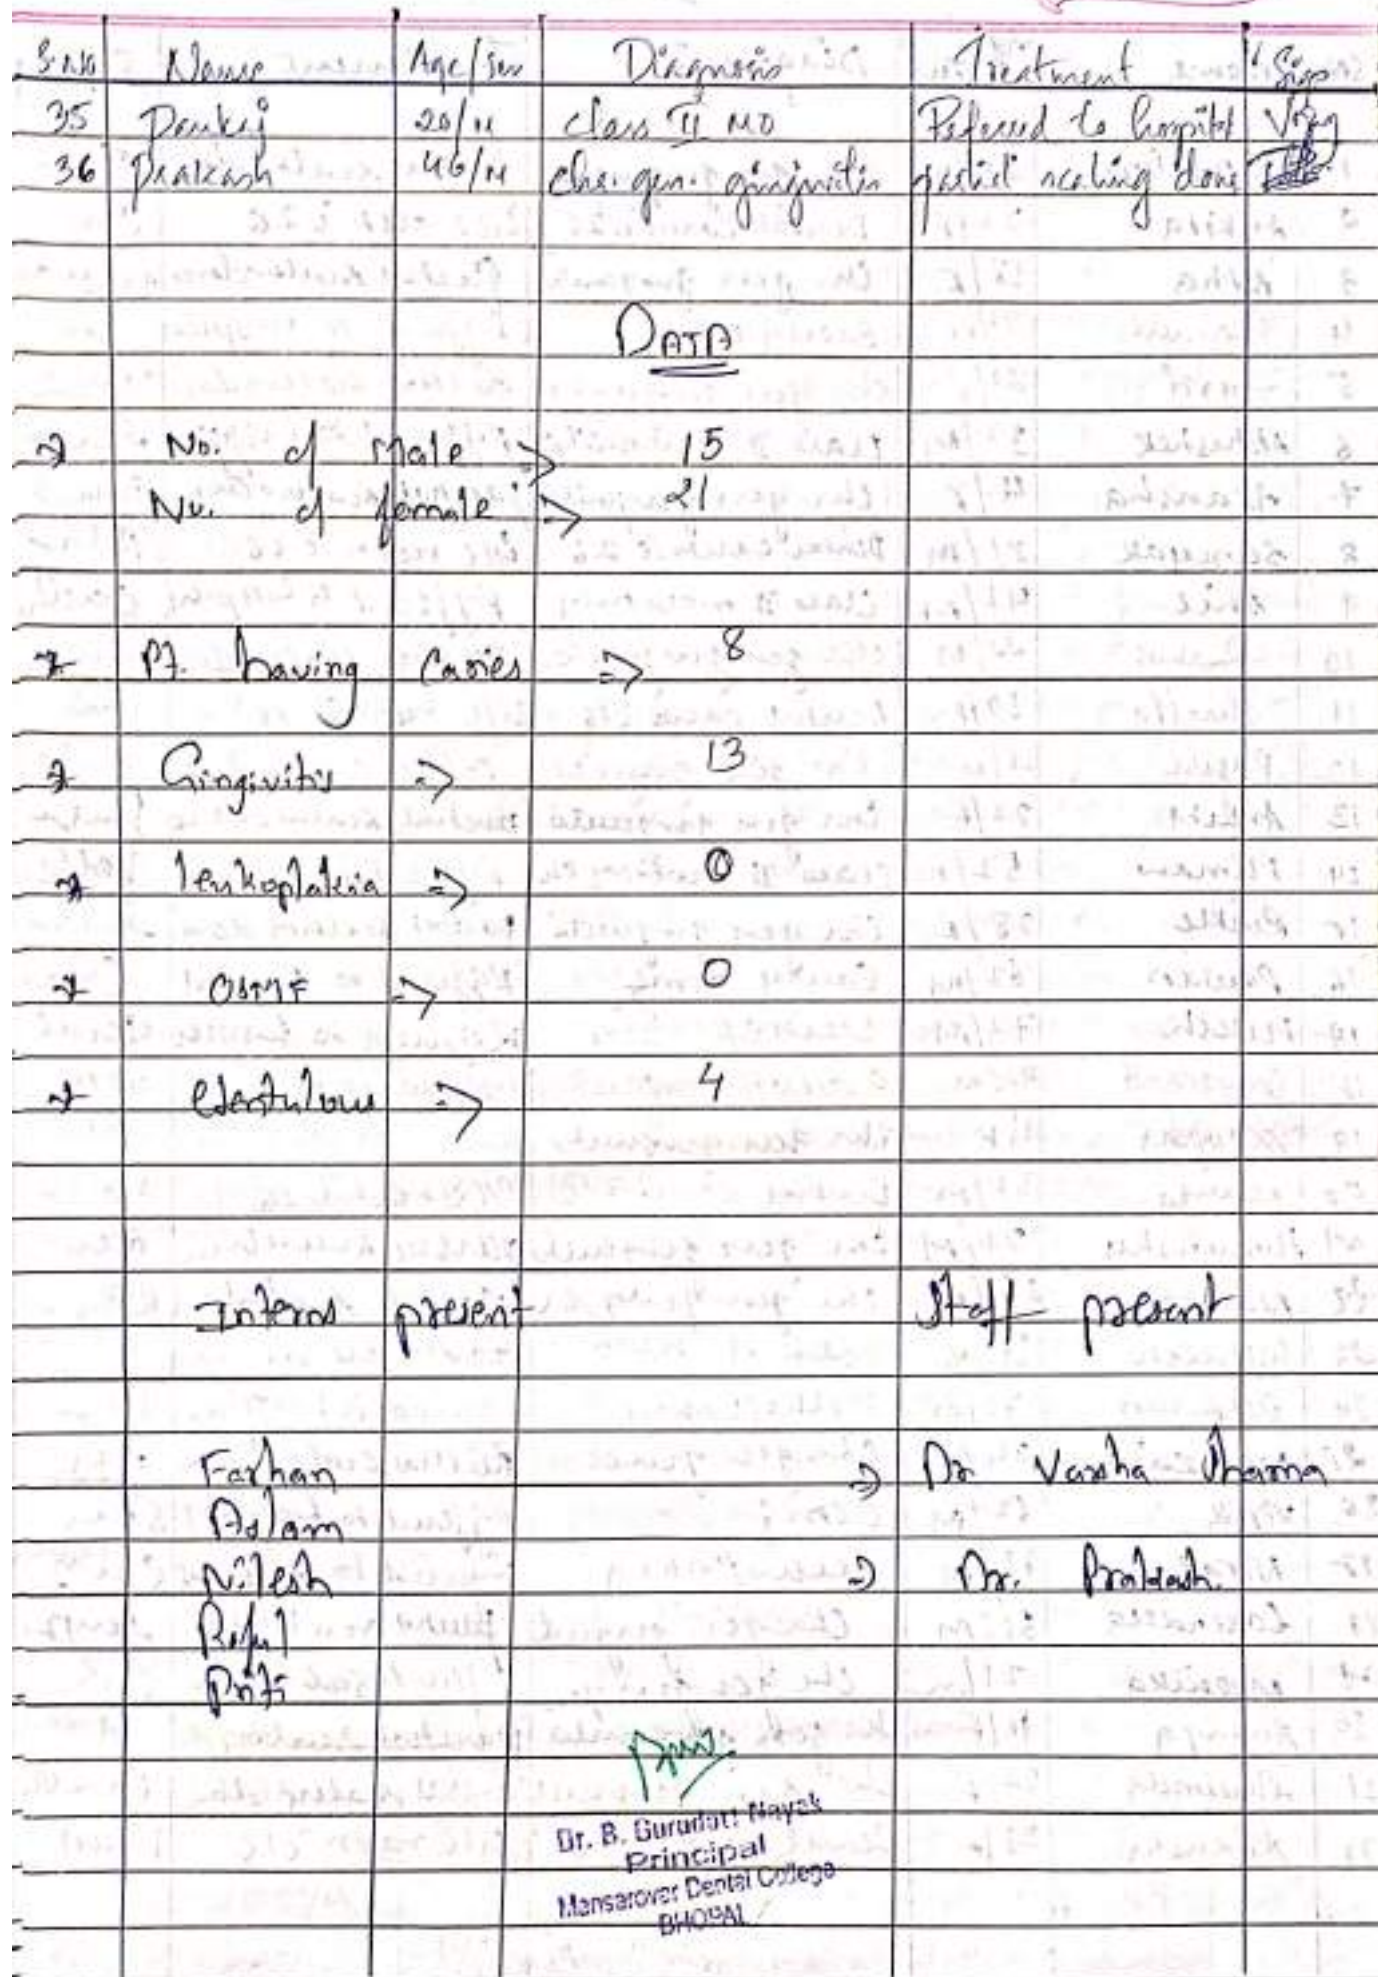 S.No Name Age/Sex Diagnosis Treatment Sign
35 Pankaj 20/M Class II MO Referred to hospital
36 Prakash 46/M Chr. gen. gingivitis partial scaling done
DATA
→ No. of Male => 15
No. of female => 21
→ Pt. having Caries => 8
→ Gingivitis => 13
→ leukoplakia => 0
→ OSMF => 0
→ edentulous => 4
Interns present Staff present
Farhan => Dr Varsha Sharma
Aslam
Nilesh => Dr. Prakash.
Priti
Dr. B. Gurudatt Nayak
Principal
Mansarover Dental College
BHOPAL